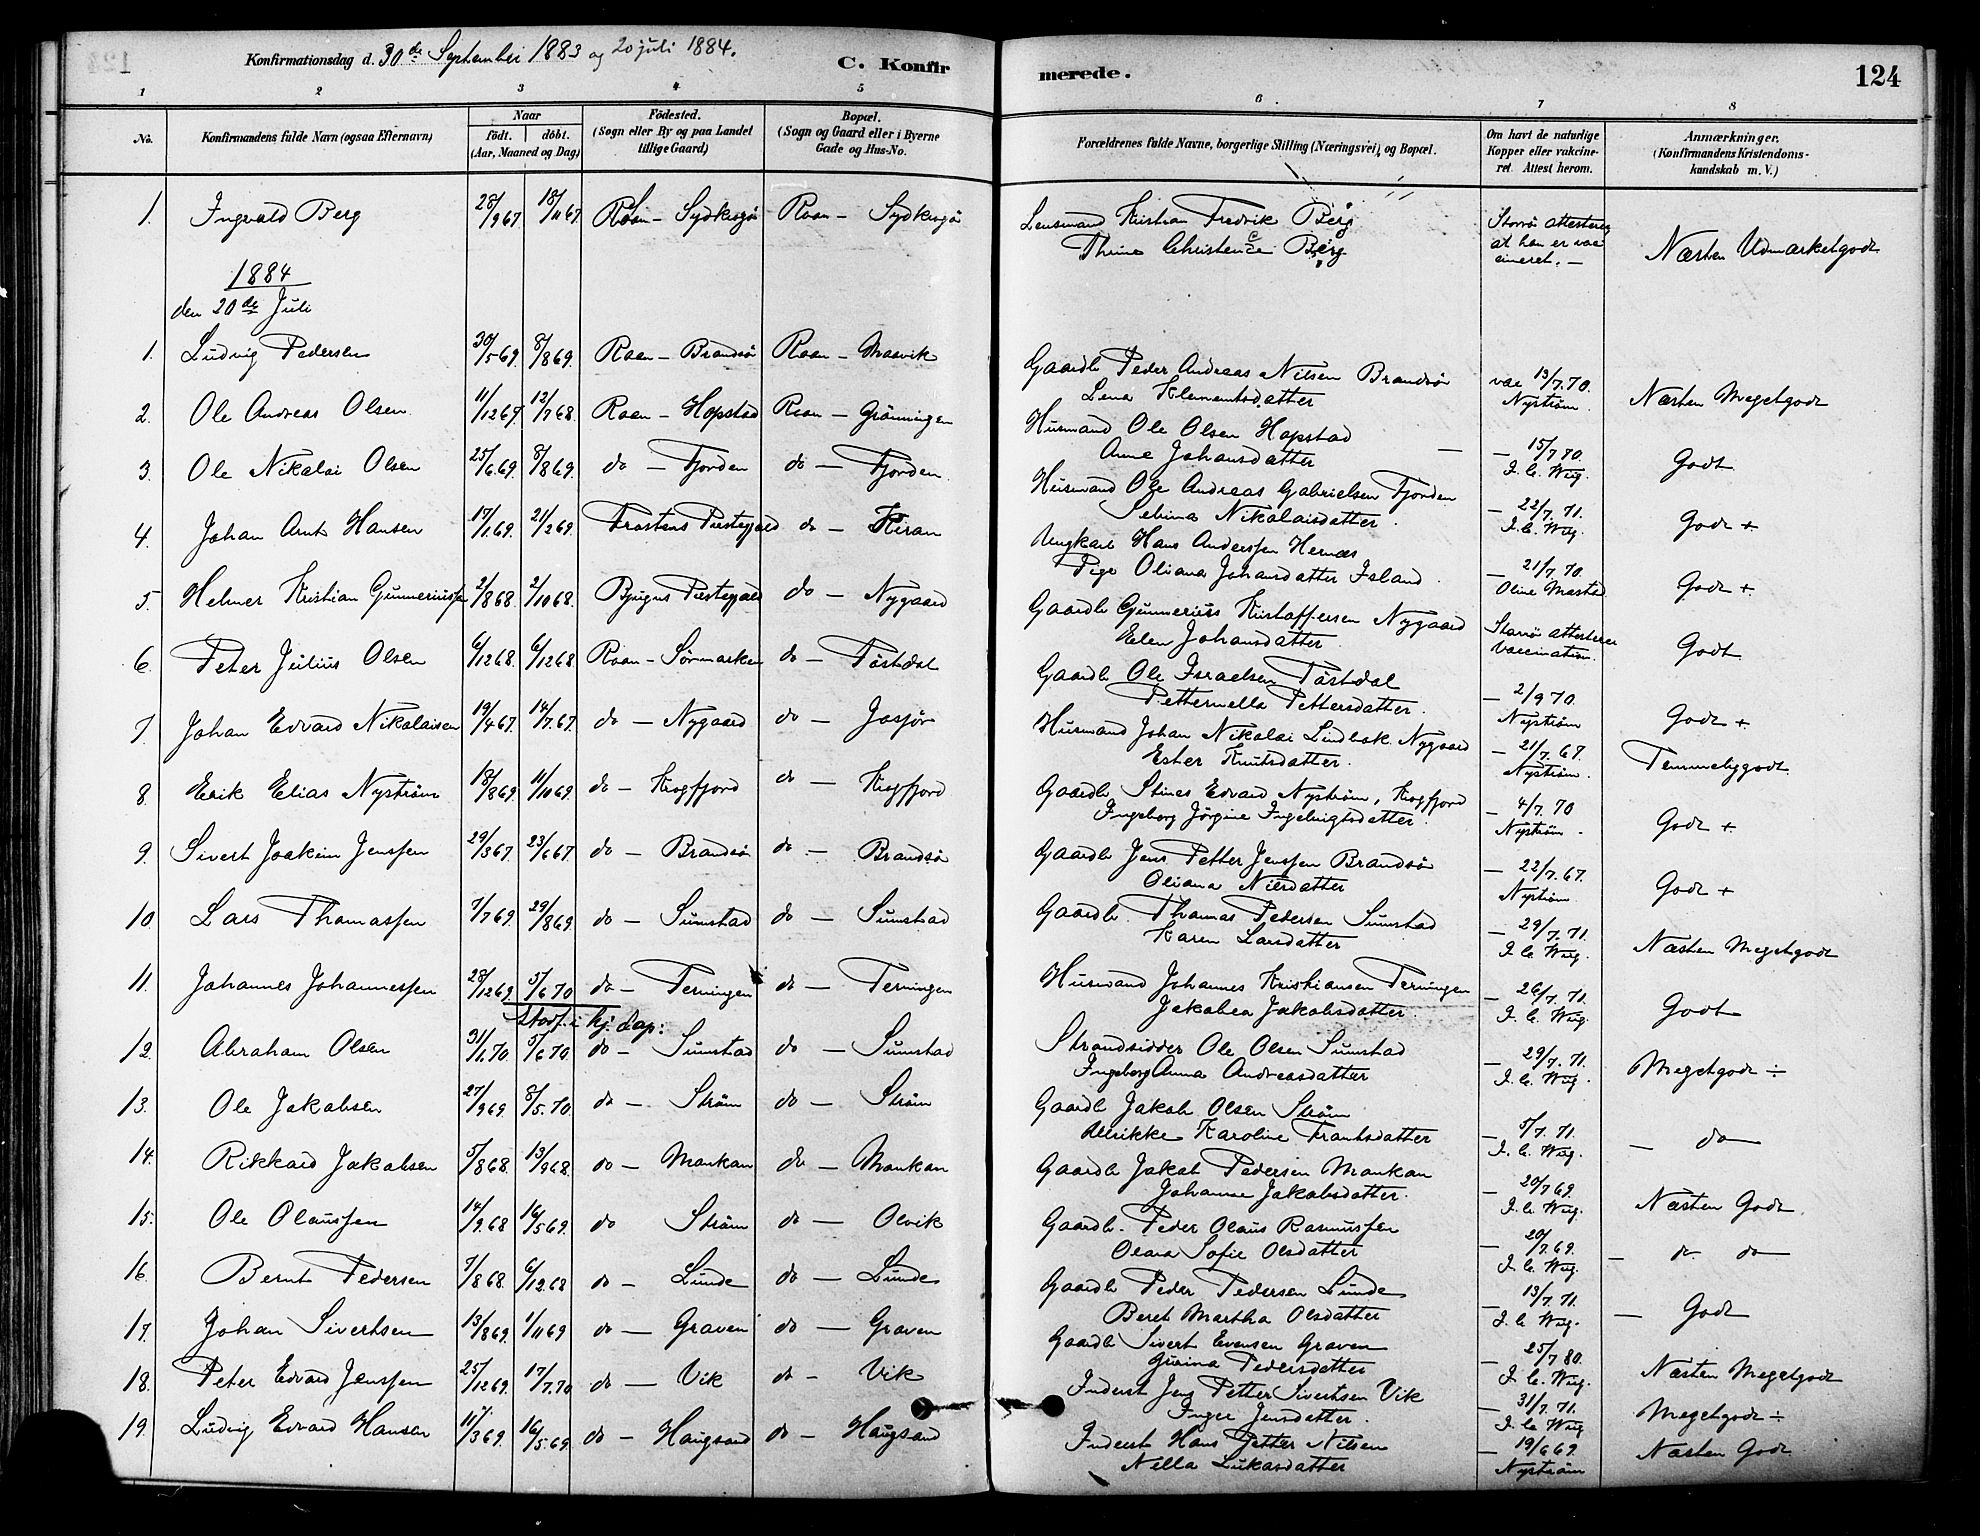 Konfirmationsdag d. 30de September 1883 og 20 juli 1884.
C. Konfir
merede.
124
1 2 3 4 5 6 7 8
No.
Konfirmandens fulde Navn (ogsaa Efternavn)
Naar
födt. döbt.
(Aar, Maaned og Dag)
Födested.
(Sogn eller By og paa Landet
tillige Gaard)
Bopæl.
(Sogn og Gaard eller i Byerne
Gade og Hus-No.
Forældrenes fulde Navne, borgerlige Stilling (Næringsvei), og Bopæl.
Om havt de naturlige
Kopper eller vakcine-
ret. Attest herom.
Anmærkninger.
(Konfirmandens Kristendoms-
kundskab m. V.)
1. Ingvald Berg 28/9 67 18/11 67 Roan - Sydkrogö Roan - Sydkrogö Lensmand Kristian Fredrik Berg
Thrine Christence Berg
Storrö attesterer
at han er vac
cineret. —
Næsten Udmærketgodt
1884
den 20de Juli
1. Ludvig Pedersen 30/5 69 8/8 69 Roan - Brandsö Roan - Maavik Gaardb Peder Andreas Nilsen Brandsö
Lena Klementsdatter
vac 13/7. 70.
Nyström.
Næsten Megetgodt
2. Ole Andreas Olsen 11/12 67 12/7 68 Roan - Hopstad Roan - Grönningen Husmand Ole Olsen Hopstad
Anne Johansdatter
— 15/7 70.
I. C. Wig.
Godt
3. Ole Nikolai Olsen 25/6 69 8/8 69 do - Fjorden do - Fjorden Husmand Ole Andreas Gabrielsen Fjorden
Selina Nikolaisdatter.
— 22/7. 71.
I. C. Wig.
Godt +
4. Johan Arnt Hansen 17/1 69 21/2 69 Frostens Præstegjæld do - Kiran Ungkarl Hans Anderssen Hernæs
Pige Oliana Johansdatter Island.
— 21/7. 70.
Oline Mæstad
Godt +
5. Helmer Kristian Gunneriussen 2/8 68. 2/10 68. Bjugns Præstegjæld do - Nygaard Gaardb Gunnerius Kristoffersen Nygaard
Elen Johansdatter.
Storrö attesterer
vaccination.
Godt
6. Peter Julius Olsen 6/12 68. 6/12 68 Roan - Sörmarken do - Töstdal Gaardb Ole Israelsen Töstdal
Petternella Pettersdatter.
— 2/9 70.
Nyström
Godt +
7. Johan Edvard Nikolaisen 19/4 67. 14/7. 67. do - Nygaard do - Josjör Husmand Johan Nikolai Lindbak Nygaard
Ester Knutsdatter.
— 21/7. 67.
Nyström.
Temmeliggodt
8. Erik Elias Nyström 18/8 69. 11/10 69. do - Krogfjord do - Krogfjord Gaardb Stines Edvard Nyström, Krogfjord
Ingeborg Jörgine Ingebrigtsdatter.
— 4/7. 70
Nyström -
Godt +
9. Sivert Joakim Jenssen 29/3 67. 23/6 67 do - Brandsö do - Brandsö Gaardb Jens Petter Jenssen Brandsö
Oliana Nilsdatter
— 22/7. 67.
Nyström
Godt +
10. Lars Thomassen 7/7 69. 29/8 69. do - Sumstad do - Sumstad Gaardb. Thomas Pedersen Sumstad
Karen Larsdatter
— 29/7. 71.
I. C. Wig.
Næsten Megetgodt
11. Johannes Johannessen 28/12 69 5/6 70 do - Terningen do - Terningen Husmand Johannes Kristiansen Terningen
Jakobea Jakobsdatter.
— 26/7. 71.
I. C. Wig.
Godt
Stadf. i hj. Dap:
12. Abraham Olsen 31/1 70 5/6 70 do - Sumstad do - Sumstad Strandsidder Ole Olsen Sumstad
Ingeborg Anna Andreasdatter
— 29/7. 71.
I. C. Wig.
Megetgodt ÷
13. Ole Jakobsen 27/9 69. 8/5. 70 do - Ström do - Ström Gaardb Jakob Olsen Ström
Ulrikke Karoline Frantsdatter
— 5/7. 71.
I. C. Wig.
— do —
14. Rikkard Jakobsen 5/8 68. 13/9 68. do - Mankan do - Mankan Gaardb Jakob Pedersen Mankan
Johanne Jakobsdatter.
— 20/7 69.
I. C. Wig.
Næsten Godt.
15. Ole Olaussen 14/9. 68 16/5 69. do Ström do - Olvik Gaardb. Peder Olaus Rasmussen
Olava Sofie Olsdatter
— 20/7. 69.
I. C. Wig.
— do do —
16. Bernt Pedersen 7/8 68. 6/12 68 do - Lunde do - Lunde Gaardb Peder Pedersen Lunde
Beret Martha Olsdatter
— 13/7. 71.
I. C. Wig.
— Godt
17. Johan Sivertsen 13/8 69. 1/11 69 do - Graven do - Graven Gaardb Sivert Evensen Graven
Gurina Pedersdatter
— 25/7 80.
I. C. Wig.
Næsten Megetgodt
18. Peter Edvard Jenssen 25/12 69. 17/7. 70 do - Vik do - Vik Inderst Jens Petter Sivertsen Vik
Inger Jensdatter.
— 31/7. 71.
I. C. Wig
Megetgodt ÷
19. Ludvig Edvard Hansen 11/3 69. 16/5. 69. do - Haugsand do - Haugsand Inderst Hans Petter Nilsen
Nella Lukasdatter
— 19/6 69.
Nyström
Næsten Godt